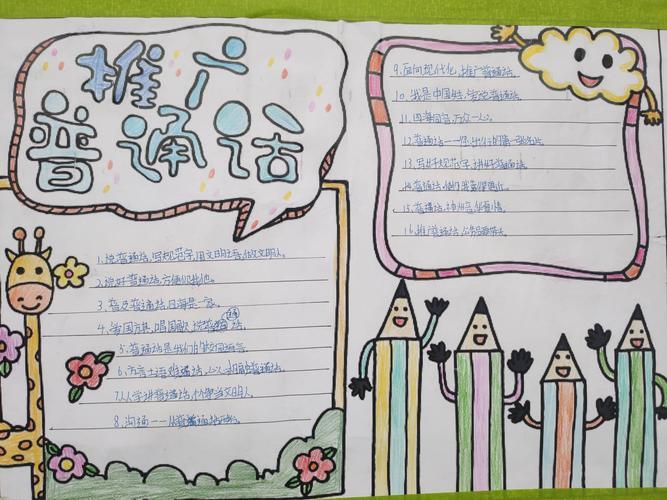 推广
普通话
1、说普通话,写规范字,用文明语,做文明人。
2、说好普通话,方便你我他。
3、普及普通话,四海是一家。
4、爱国旗,唱国歌,说普通话。
5、普通话是我们的校园语言。
6、方言土语难通话,心心相印普通话。
7、人人学讲普通话,个个争当文明人。
8、沟通——从普通话开始。
9、面向现代化,推广普通话。
10、我是中国娃,爱说普通话。
11、四海同音,万众一心。
12、普通话——你我的第一张名片。
13、写好规范字,讲好普通话。
14、普通话,使你我靠得更近。
15、普通话,神州音,华夏情。
16、推广普通话,